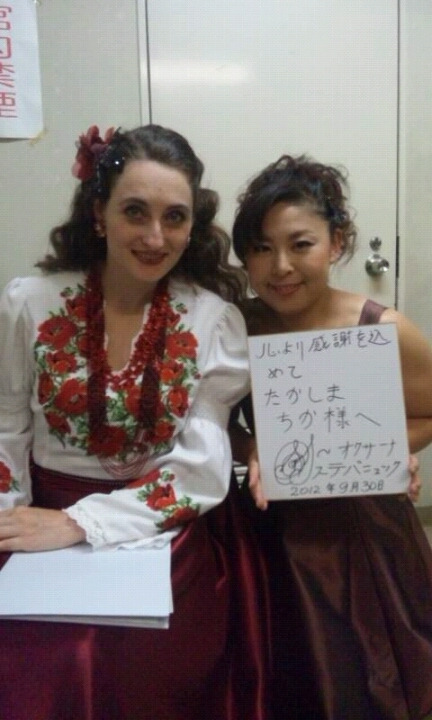 館内禁煙
心より感謝を込
めて
たかしま
ちか様へ
～オクサーナ
ステパニュック
2012年9月30日